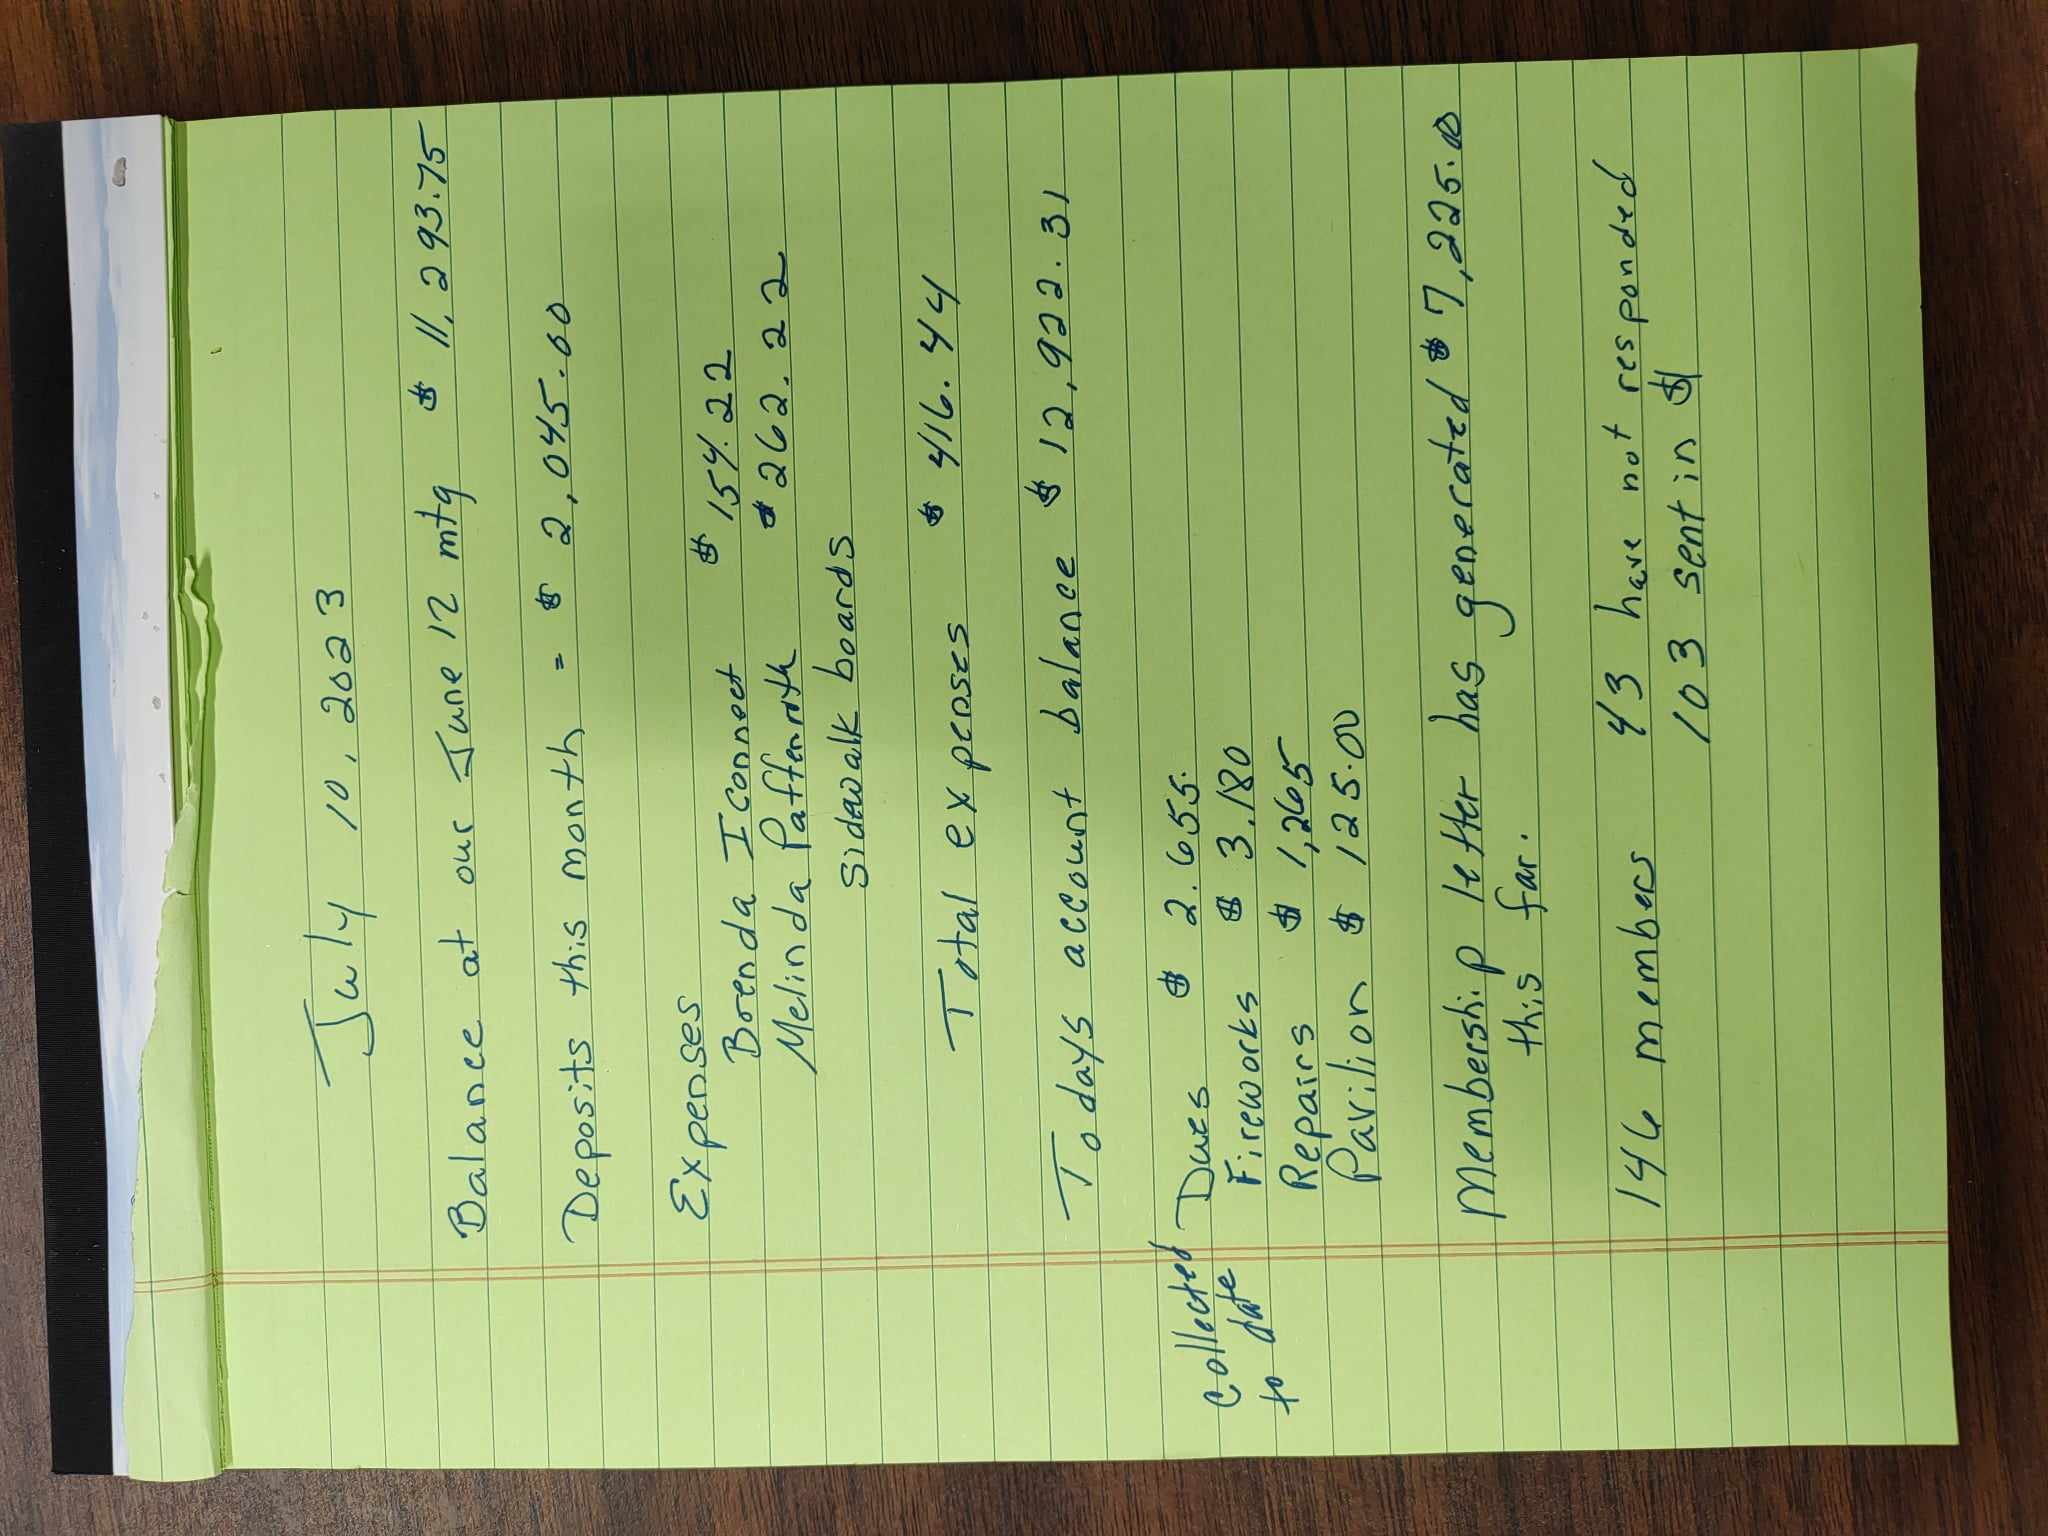 July 10, 2023
Balance at our June 12 mtg $ 11,293.75
Deposits this month = $ 2,045.00
Expenses
Brenda Iconnect $ 154.22
Melinda Paffenroth $ 262.22
Sidewalk boards
Total expenses $ 416.44
Todays account balance $ 12,922.31
Collected Dues $ 2.655.
to date Fireworks $ 3,180
Repairs $ 1,265
Pavilion $ 125.00
Membership letter has generated $ 7,225.00
this far.
146 members 43 have not responded
103 sent in $